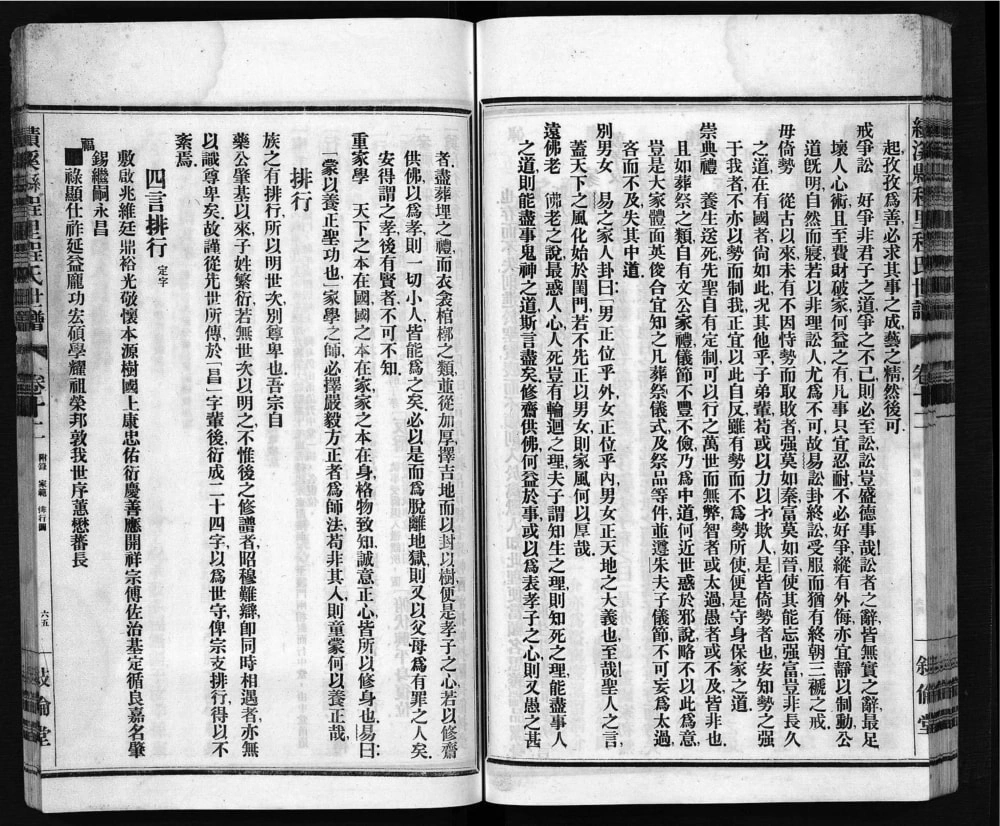 績溪縣程里程氏世譜 卷十二 敍倫堂
起孜孜為善必求其事之成藝之精然後可
戒爭訟 好爭非君子之道爭之不已則必至訟訟豈盛德事哉訟者之辭皆無實之辭最足
壞人心術且至費財破家何益之有凡事只宜忍耐不必好爭縱有外侮亦宜靜以制動公
道旣明自然而寢若以非理訟人尤為不可故易訟卦終訟受服而猶有終朝三褫之戒
毋倚勢 從古以來未有不因恃勢而取敗者强莫如秦富莫如晉使其能忘强富豈非長久
之道在有國者尙如此况其他乎子弟輩苟或以力以才欺人是皆倚勢者也安知勢之强
于我者不亦以勢而制我正宜以此自反雖有勢而不為勢所使便是守身保家之道
崇典禮 養生送死先聖自有定制可以行之萬世而無弊智者或太過愚者或不及皆非也
且如葬祭之類自有文公家禮儀節不豐不儉乃為中道何近世惑於邪說略不以此為意
豈是大家體面英俊合宜知之凡葬祭儀式及祭品等件並遵朱夫子儀節不可妄為太過
吝而不及失其中道
別男女 易之家人卦曰男正位乎外女正位乎內男女正天地之大義也至哉聖人之言
蓋天下之風化始於閨門若不先正以男女則家風何以厚哉
遠佛老 佛老之說最惑人心人死豈有輪迴之理夫子謂知生之理則知死之理能盡事人
之道則能盡事鬼神之道斯言盡矣修齋供佛何益於事或以為表孝子之心則又愚之甚
者盡葬埋之禮而衣衾棺槨之類並從加厚擇吉地而以封以樹便是孝子之心若以修齋
供佛以為孝則一切小人皆能為之矣必以是而為脫離地獄則又以父母為有罪之人矣
安得謂之孝後有賢者不可不知
重家學 天下之本在國國之本在家家之本在身格物致知誠意正心皆所以修身也易曰
蒙以養正聖功也家學之師必擇嚴毅方正者為師法苟非其人則童蒙何以養正哉
排行
族之有排行所以明世次別尊卑也吾宗自
藥公肇基以來子姓繁衍若無世次以明之不惟後之修譜者昭穆難辯卽同時相遇者亦無
以識尊卑矣故謹從先世所傳於昌字輩後衍成二十四字以為世守俾宗支排行得以不
紊焉
四言排行 定字
敷啟兆維廷鼎裕光敬懷本源樹國上康忠佑衍慶善應開祥宗傳佐治基定循良嘉名肇
錫繼嗣永昌
福祿顯仕祚延益龐功宏碩學耀祖榮邦敦我世序蕙懋蕃長
績溪縣程里程氏世譜 卷十二 附錄 家範 排行圖 六五 敍倫堂